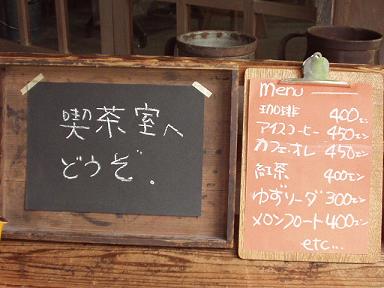 喫茶室へ
どうぞ.
menu
珈琲 400エン
アイスコーヒー 450エン
カフェ・オレ 450エン
紅茶 400エン
ゆずソーダ 300エン
メロンフロート 400エン
etc...